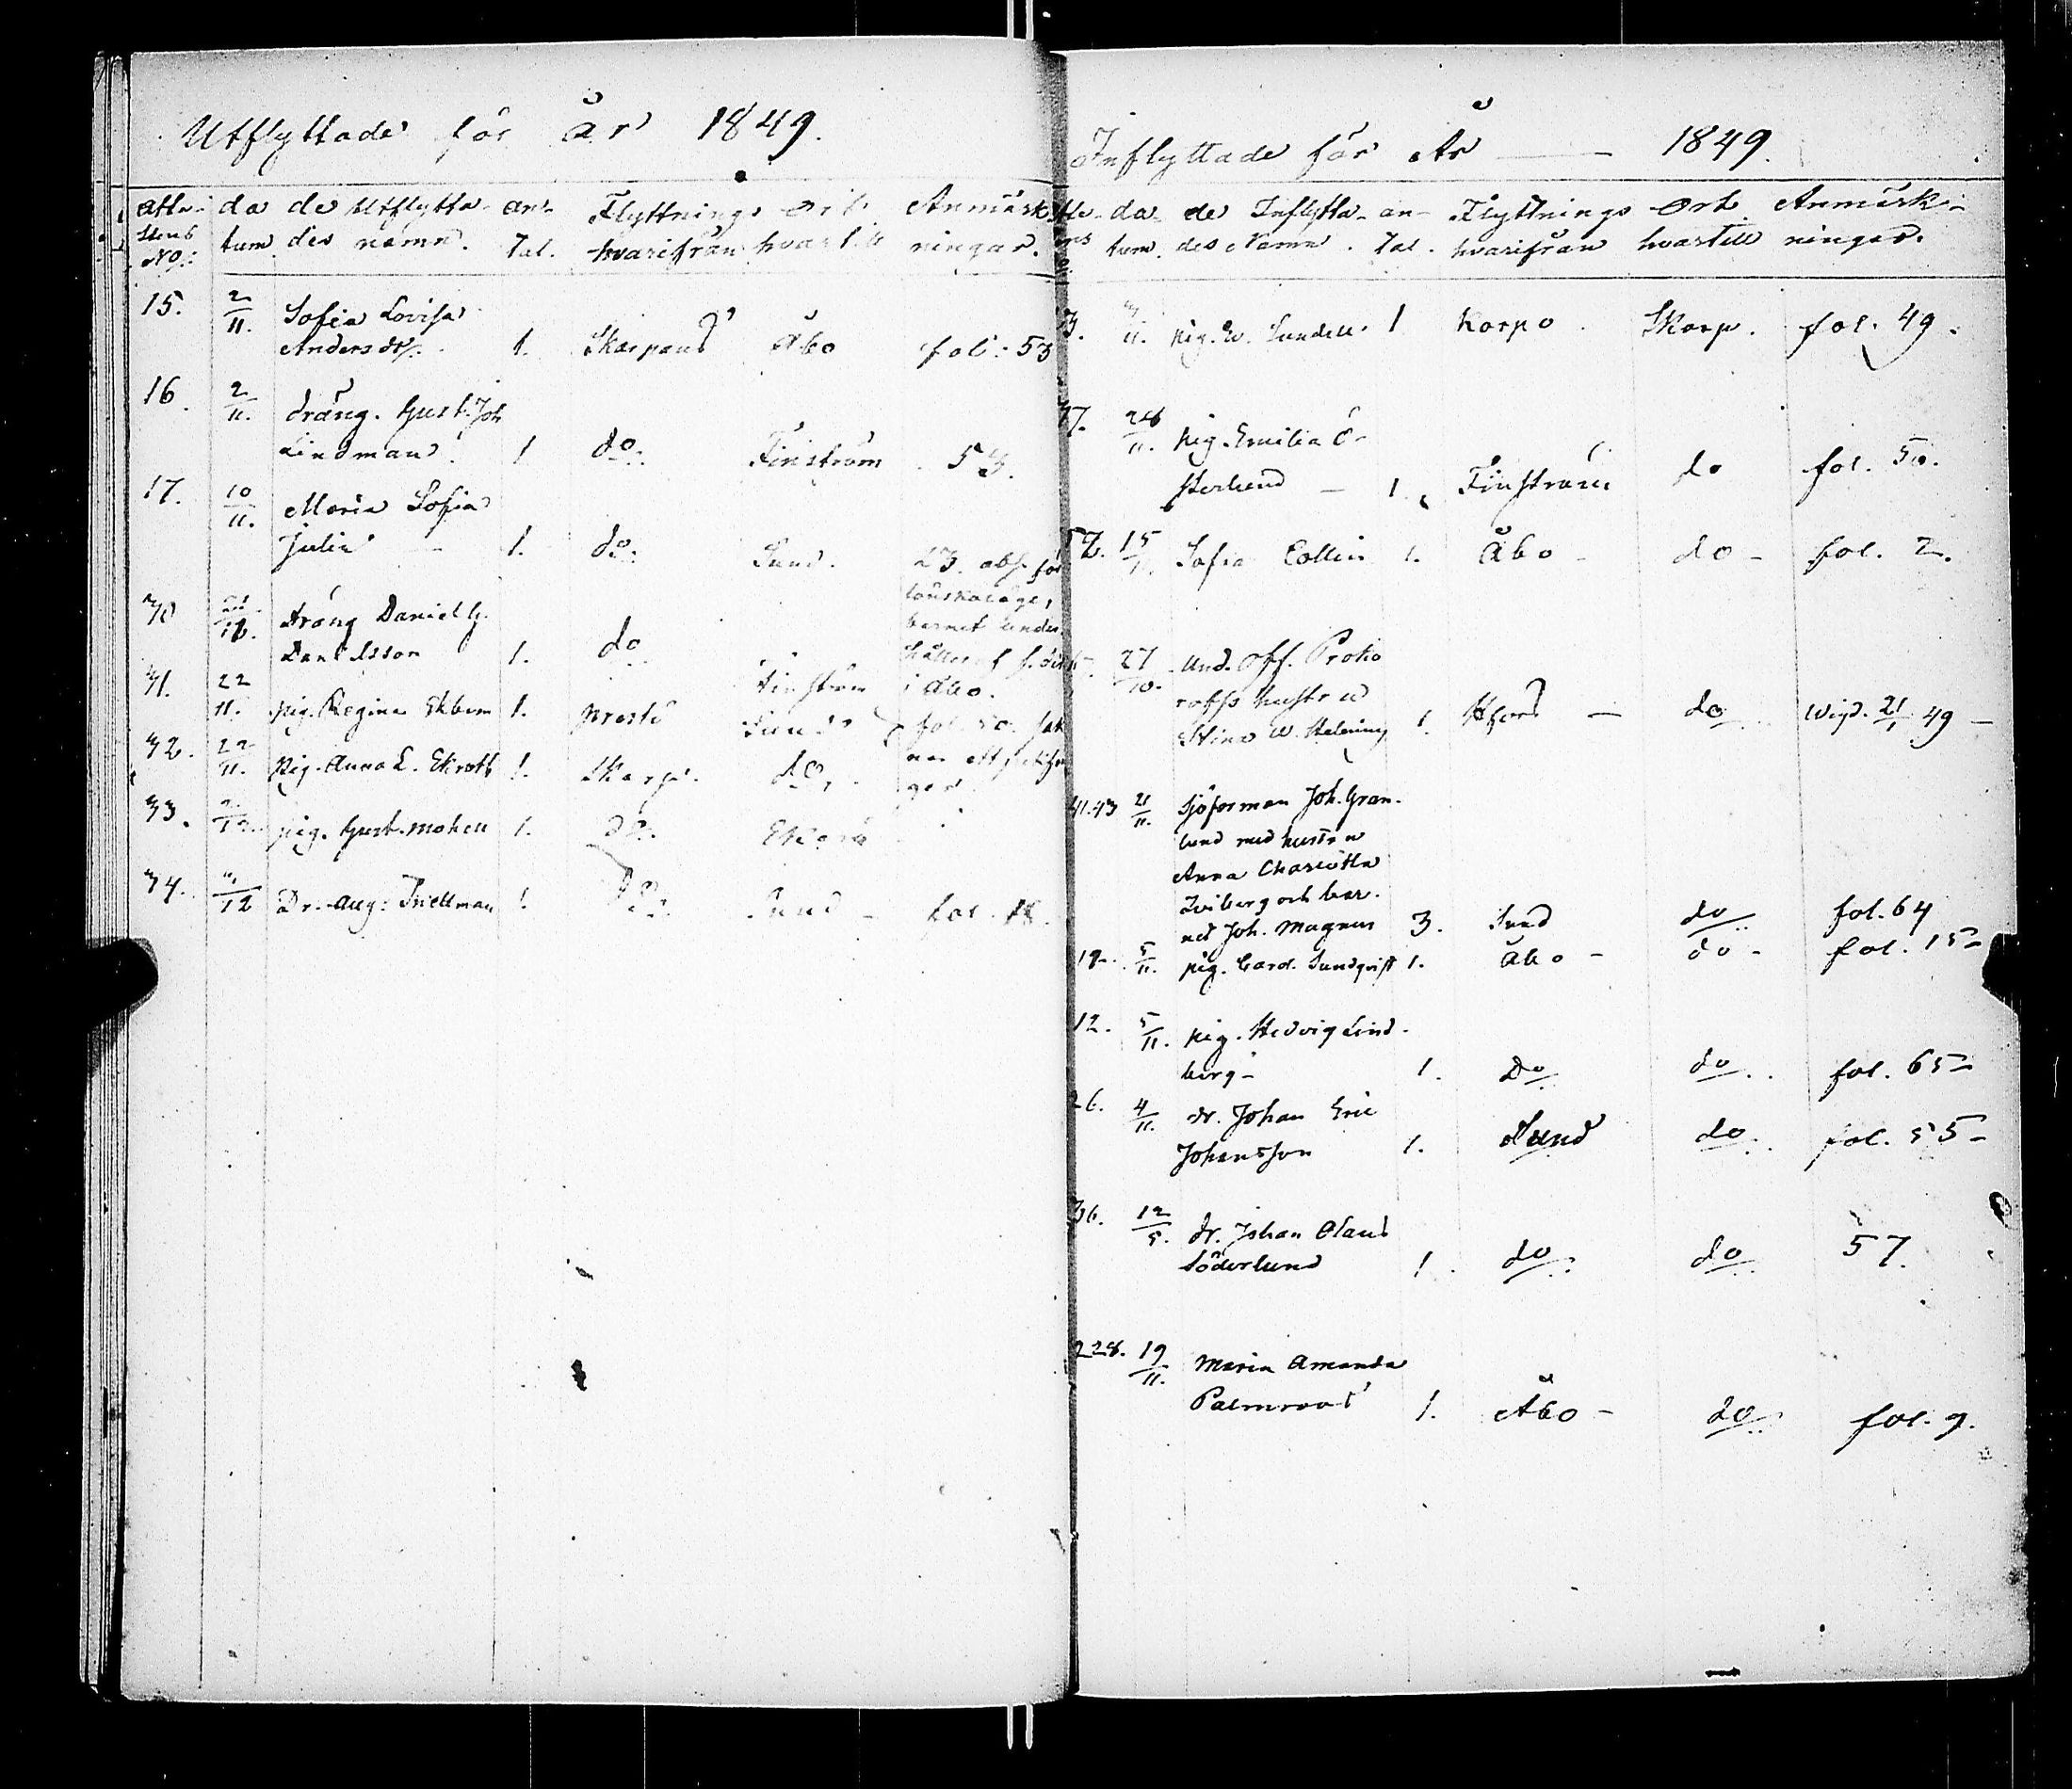 Utflyttade för år 1849.
Atte- da de Utflytta- an- Flyttnings Ort Anmärk
stens tum des namn. tal. hvarifrån hvartill ningar.
No:
15. 2/11. Sofia Lovisa
Andersdr. 1. Skarpans Åbo fol: 53
16. 2/11. dräng. Gust. Joh
Lindman 1 do: Finström 53.
17. 10/11. Maria Sofia
Julin 1. do: Sund. 23. abs. för
lönskaläge,
barnet under
Dräng Daniel G.
Danielsson 1. do Finström i Åbo.
22/11. pig. Regina Ekbom 1. prestö Sund
22/11. pig. Anna L. Ekroth 1. Skarp. do,
pig. Gust. Mohell 1. do. Ekerö
Dr. Aug: Triellman 1. do: Sund - fol. 18.
Inflyttade för År — 1849.
da- de Inflytta- an- Flyttnings Ort Anmärk-
tum. des Namn. tal. hvarifrån hvartill ningar.
pig. W. Sundell 1 Korpo. Skarp. fol. 49.
28/11. pig. Emilia Ö-
sterlund — 1. Finström do fol. 50.
Sofia Collin 1. Åbo - do - fol. 2.
27/10. Und. Off. Proko
roffs hustru
Stina W. 1. Hfors — do Wigd. 21/1 49 -
41.43 21/11. Sjöferman Joh. Gran-
lund med hustru
Anna Charlotta
Sviberg och bar-
net Joh. Magnus 3. Sund do fol. 64
5/11. pig. Carol. Sundqvist 1. Åbo - do - fol. 15-
12. 5/11. pig. Hedvig Lind-
berg - 1. Do do. fol. 65-
26. 4/11. dr. Johan Eric
Johansson 1. Sund do. fol. 55-
36. 12/5. dr. Johan Olaus
Söderlund 1. do: do. 57.
228. 19/11. Maria Amanda
Palmroos 1. Åbo - do fol. 9.